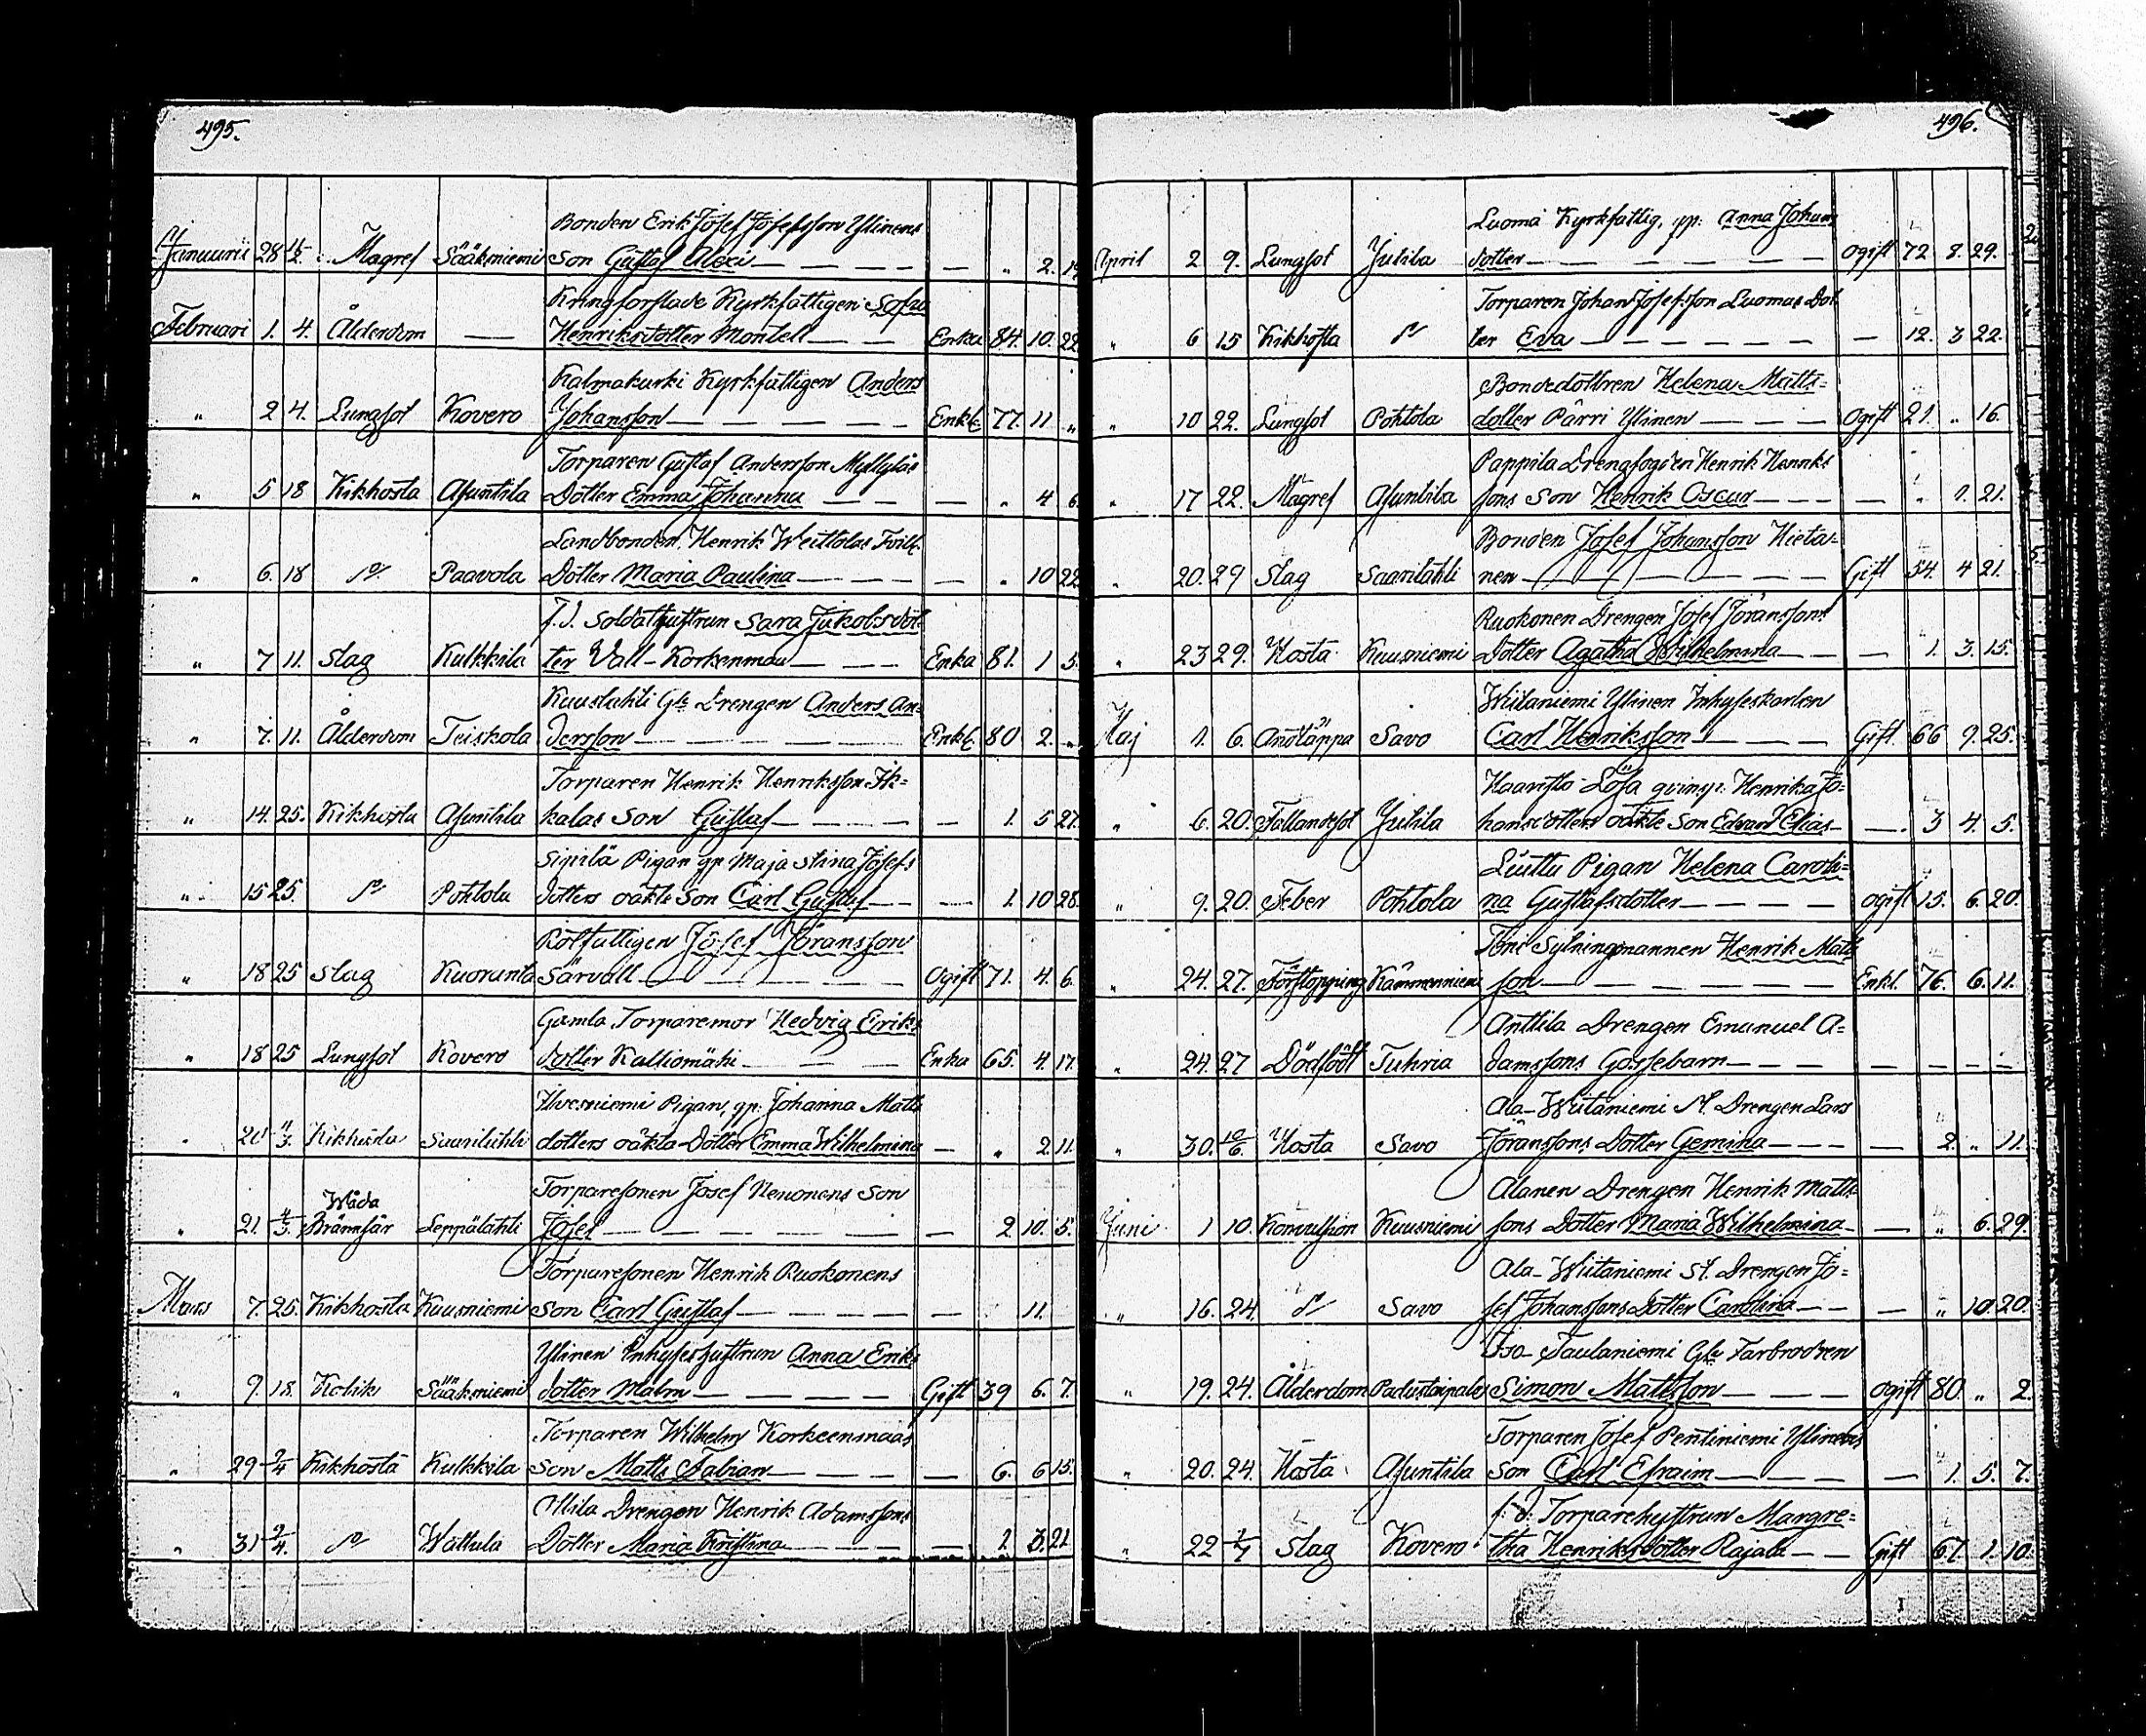 495.
Bonden Erik Josef Josefsson Ylinens
Januarii 28 Magref Sääksniemi son Gustaf Alexi — — — — — „ 2. 19
Kringförflade Kyrkfattigen Sofia
Februari 1. 4. Ålderdom — Henriksdotter Montell — — Enka 84. 10. 22
Kalmakurki Kyrkfattigen Anders
„ 2 4. Lungsot Kovero Johansson — — — — — Enkl. 77. 11. „
Torparen Gustaf Andersson Myllyläs
„ 5 18 Kikhosta Asuntila Dotter Emma Johanna — — — „ 4 6.
Landbonden Henrik Weittolas
„ 6. 18 Paavola Dotter Maria Paulina — — — — „ 10 22
f.d. Soldathustrun Sara Jakobsdot
„ 7 11. Slag Kulkkila ter Vall-Korkenmaa — — — Enka 81. 1 5.
Kuuslahti Gle Drengen Anders An=
„ 7. 11. Ålderdom Teiskola dersson — — — — — Enkl. 80 2. „
Torparen Henrik Henriksson Ik=
„ 14. 25. Kikhosta Asuntila kalas Son Gustaf — — — — — 1. 5 27.
Sipilä Pigan gp. Maja Stina Josefs
„ 15 25. Pohtola dotters oäkte son Carl Gustaf — — — 1. 10 28
Rotfattigen Josef Jöransson
„ 18 25 Slag Kuoranta Särvall — — — — Ogift 71. 4. 6.
Gamla Torparemor Hedvig Eriks
„ 18 25 Lungsot Kovero dotter Kalliomäki — — — Enka 65. 4. 17.
Ilvesniemi Pigan, gp. Johanna Matts
„ 20 11/3. Kikhosta Saarilahti dotters oäkta Dotter Emma Wilhelmina — „ 2. 11.
Torparesonen Josef Nenonens Son
Wåda
„ 21. 4/3. Brännsår Leppälahti Josef — — — — — — 2 10. 5.
Torparesonen Henrik Ruokonens
Mars 7. 25. Kikhosta Kuusniemi son Carl Gustaf — — — — — 11.
Ylinen Inhyseshustrun Anna Eriks
„ 9. 18. Kolik Sääksniemi dotter Malm — — — — Gift 39 6. 7.
Torparen Wilhelm Korkeenmaas
„ 29 2/4 Kikhosta Kulkkila Son Matts Fabian — — — — — 6. 6 15.
Ollila Drengen Henrik Adamssons
„ 31 2/4. Wättula Dotter Maria Kristina — — — — 1 3. 21
496.
Luoma Kyrkfattig, gp. Anna Johans
April 2 9. Lungsot Jutila dotter — — — — — Ogift 72 8. 29.
Torparen Johan Josefsson Luomas Dot
„ 6 15 Kikhosta ter Eva — — — — — — 12. 3 22.
Bondedottren Helena Matts=
„ 10 22. Lungsot Pohtola dotter Pärri Ylinen — — — Ogift 21. „ 16.
Pappila Drengfogden Henrik Henriks
„ 17 22. Magref Asuntila sons Son Henrik Oscar — — — — „ 1. 21.
Bonden Josef Johansson Hieta=
„ 20. 29 Slag Saarilahti nen — — — — — Gift 54. 4 21.
Ruokonen Drengen Josef Jöranssons
„ 23 29. Hosta Kuusniemi Dotter Agatha Wilhelmina — — — 1. 3. 15.
Wiitaniemi Ylinen Inhyseskarlen
Maj 1. 6. Andtäppa Savo Carl Henriksson — — — — Gift. 66 9. 25.
Haaristo Lösa qvinsp. Henrika Jo=
„ 6. 20. Fallandsot Jutila hansdotters oäkte Son Edvard Elias — — 3 4. 5.
Luuttu Pigan Helena Caroli=
„ 9. 20. Feber Pohtola na Gustafsdotter — — — — ogift 15. 6. 20.
Toni Sytningsmannen Henrik Matts
„ 24. 27. Förstoppning Kämmenniemi son — — — — — Enkl. 76. 6. 11.
Anttila Drengen Emanuel A=
„ 24. 27 Dödfödt Tuhria damssons Gossebarn — — — — — — —
Ala-Wiitaniemi St. Drengen Lars
„ 30. 10/6. Hosta Savo Jöranssons Dotter Gemina — — — — 2. „ 11.
Alanen Drengen Henrik Matts
Juni 1 10. Konvulsion Kuusniemi sons Dotter Maria Wilhelmina — — „ 6. 29.
Ala-Wiitaniemi St. Drengen Jo=
„ 16. 24. Savo sef Johanssons Dotter Carolina — — — „ 10 20.
Iso Taulaniemi Gle Farbrodren
„ 19. 24. Ålderdom Padustaipale Simon Mattsson — — — ogift 80. „ 2.
Torparen Josef Pentiniemi Ylinens
„ 20. 24. Hosta Asuntila Son Carl Efraim — — — — 1. 5. 7.
f.d. Torparehustrun Margre=
„ 22 1/7 Slag Kovero tha Henriksdotter Rajala — — Gift 67 1. 10.